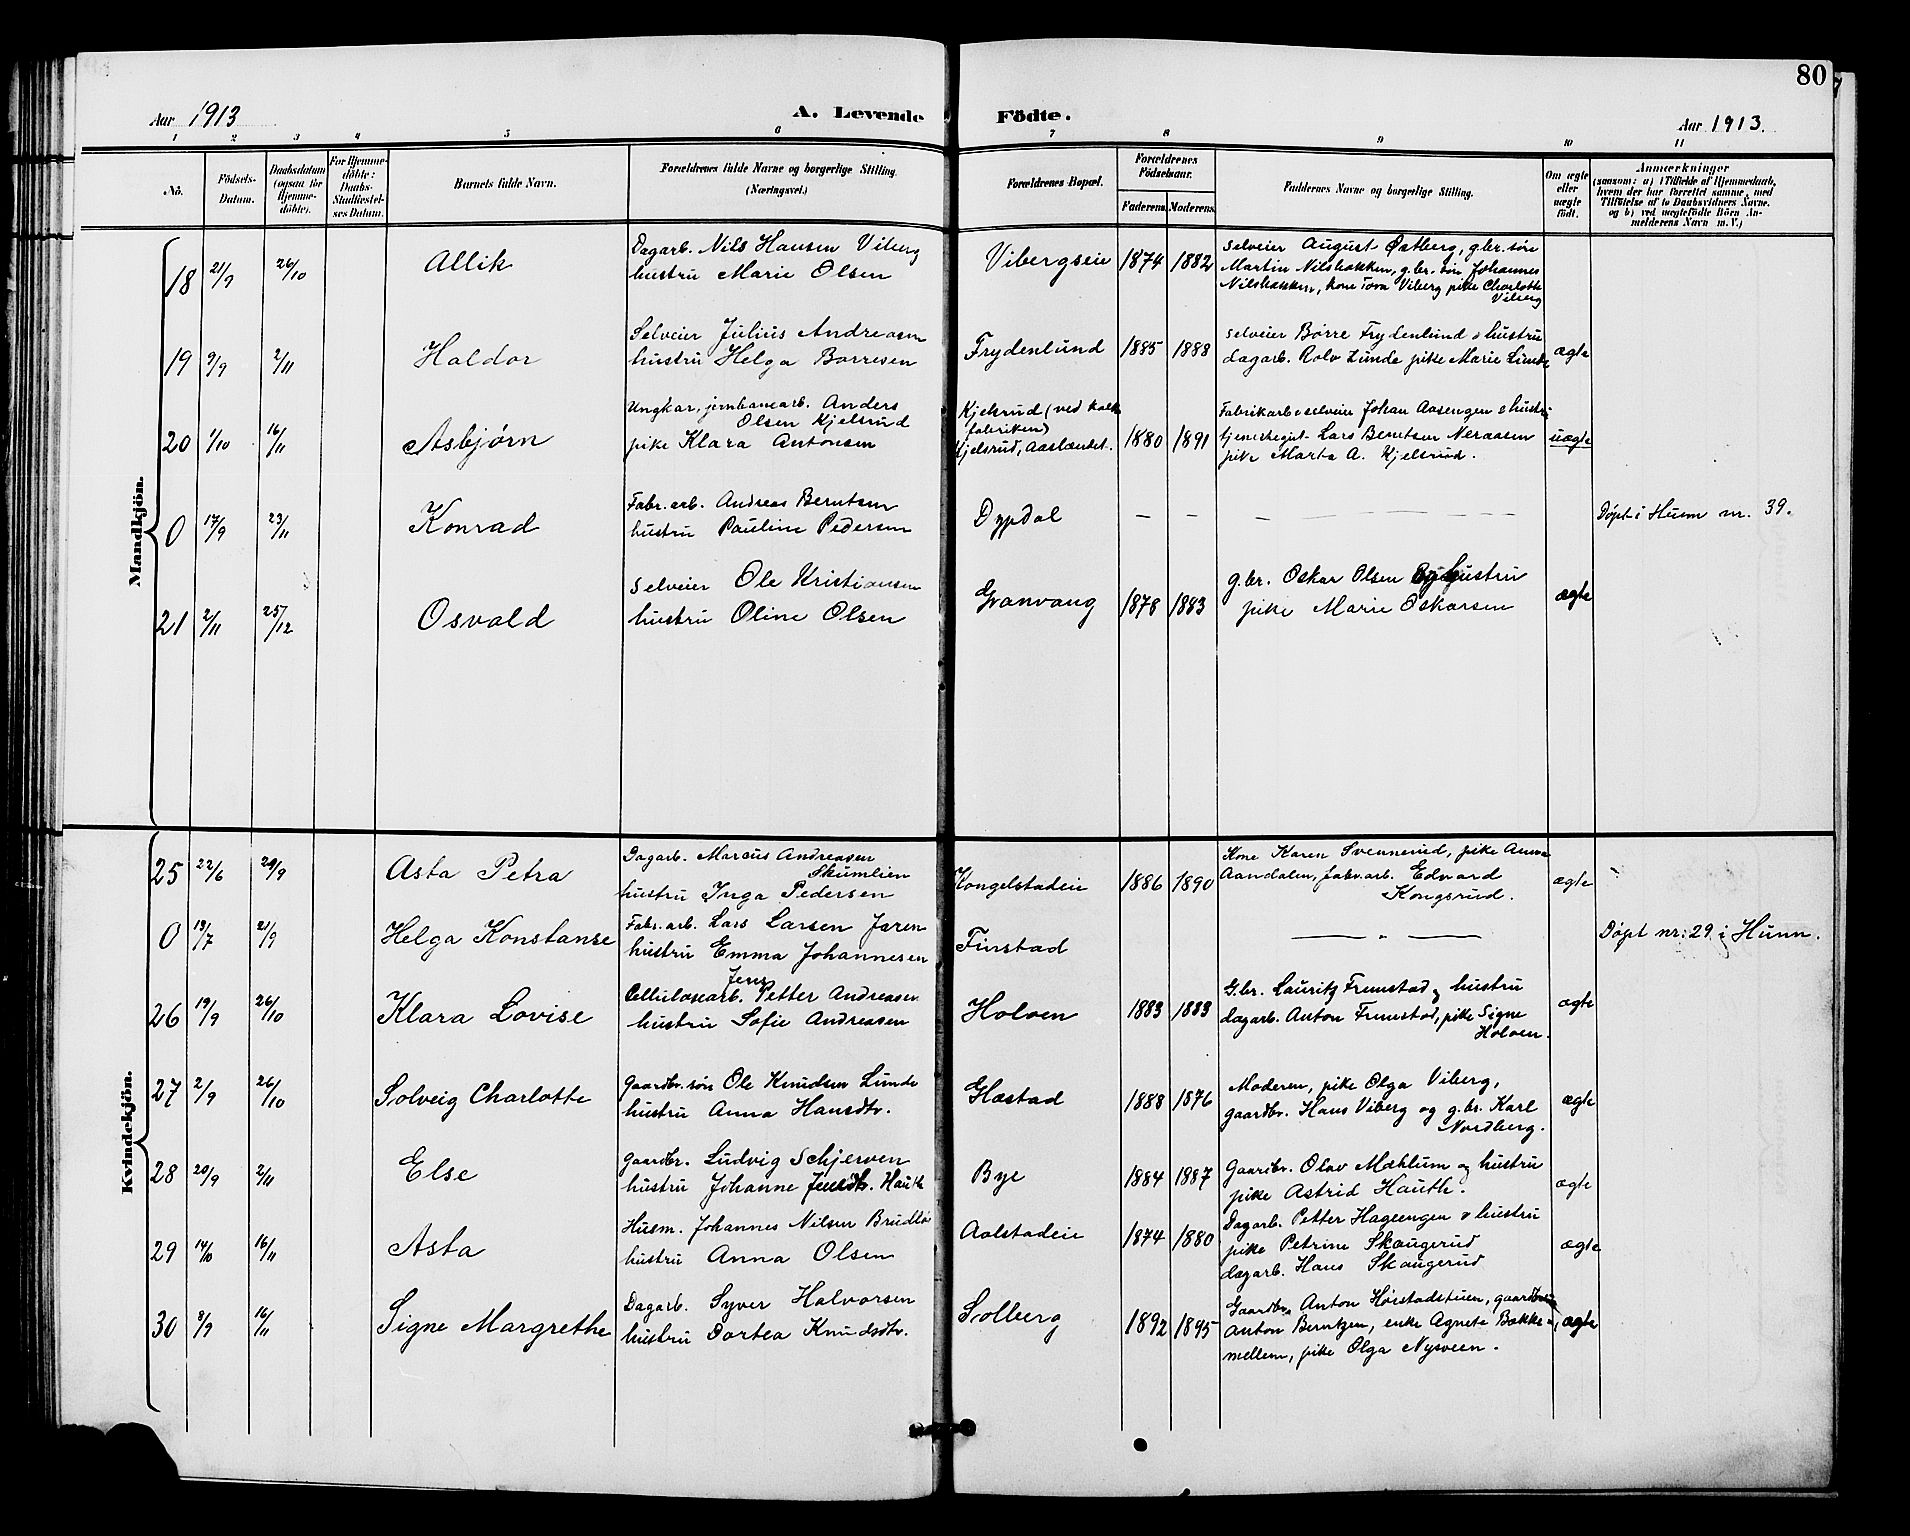 80
Aar 1913
A. Levende
Födte.
Aar 1913.
1 2 3 4 5 6 7 8 9 10 11
No.
Födsels-
Datum.
Daabsdatum
(ogsaa for
Hjemme-
döbte).
For Hjemme-
döbte:
Daabs-
Stadfæstel-
ses Datum.
Barnets fulde Navn.
Forældrenes fulde Navne og borgerlige Stilling.
(Næringsvei.)
Forældrenes Bopæl.
Forældrenes
Födselsaar.
Faderens.
Moderens.
Faddernes Navne og borgerlige Stilling.
Om ægte
eller
uægte
födt.
Anmærkninger
(saasom: a) i Tilfælde af Hjemmedaab,
hvem der har forrettet samme, med
Tilföielse af to Daabsvidners Navne.
og b) ved uægtefödte Börn An-
melderens Navn m. V.)
Mandkjön.
18 21/9 26/10 Allik
Dagarb. Nils Hansen Viberg
hustru Marie Olsen
Vibergseie 1874 1882
Selveier August Østberg, g.br. søn
Martin Nilsbakken, g.br. søn Johannes
Nilsbakken, kone Tora Viberg pike Charlotte
Viberg
19 9/9 2/11 Haldor
Selveier Julius Andreasen
hustru Helga Borresen
Frydenlund 1885 1888
Selveier Børre Frydenlund & hustru
dagarb. Rolv Lunde pike Marie Lunde
ægte
20 1/10 16/11 Asbjørn
Ungkar, jernbanearb. Anders
Olsen Kjelsrud
pike Klara Antonsen
Kjelsrud (ved kalk
fabriken)
Kjelsrud, Aaslændet.
1880 1891
Fabrikarb & selveier Johan Aasengen & hustru
Lars Berntsen Neraasen
pike Marta A. Kjelsrud.
uægte
0 17/9 23/11 Konrad
Fabr. arb. Andreas Berntsen
hustru Pauline Pedersen
Dypdal – – – – – – –
Døpt i Hunn nr. 39.
21 2/11 25/12 Osvald
Selveier Ole Kristiansen
hustru Oline Olsen
Granvang 1878 1883
g.br. Oskar Olsen hustru
pike Marie Oskarsen
ægte
Kvindekjön.
25 22/6 29/9 Asta Petra
Dagarb. Marcus Andreasen
Skumlien
hustru Inga Pedersen
Kongelstadeie 1886 1890
Kone Karen Svennerud, pike Anna
Aandalen, fabr. arb. Edvard
Kongsrud.
ægte
0 13/7 21/9 Helga Konstanse
Fabr. arb. Lars Larsen Jaren
hustru Emma Johannesen
Finstad – " –
Døpt nr: 29 i Hunn.
26 19/9 26/10 Klara Lovise
Cellulosearb. Petter Andreasen
hustru Sofie Andreasen
Holven 1883 1883
G.br. Lauritz Fremstad og hustru
dagarb. Anton Fremstad, pike Signe
Holven.
ægte
27 2/9 26/10 Solveig Charlotte
Gaardbr. søn Ole Knudsen Lunde
hustru Anna Hansdtr.
Glæstad 1888 1876
Moderen, pike Olga Viberg,
gaardbr. Hans Viberg og g.br. Karl
Nordberg.
ægte
28 20/9 2/11 Else
Gaardbr. Ludvig Schjerven
hustru Johanne Jensdtr. Hauth
Bye 1884 1887
Gaardbr. Olav Mæhlum og hustru
pike Astrid Hauth.
ægte
29 14/10 16/11 Asta
Husm. Johannes Nilsen
hustru Anna Olsen
Aalstadeie 1874 1880
Dagarb. Petter Hageengen & hustru
pike Petrine Skaugerud
dagarb. Hans Skaugerud
ægte
30 8/9 16/11 Signe Margrethe
Dagarb. Syver Halvorsen
hustru Dortea Knudsdtr.
Solberg 1892 1895
Gaardbr. Anton Hørstadstuen, gaardbruk
Anton Berntzen, enke Agnete Bakke
mellem, pike Olga Nysveen.
ægte